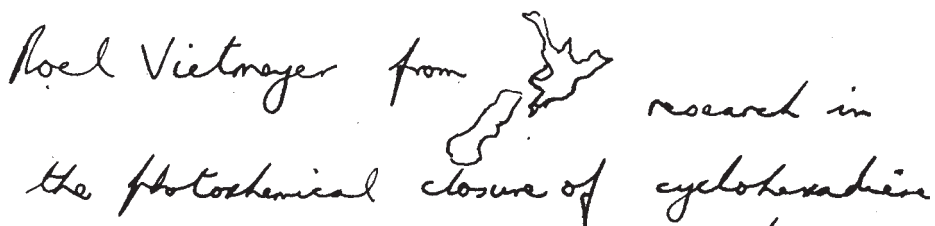 Noel Vietmeyer from research in
the photochemical closure of cyclohexadiene